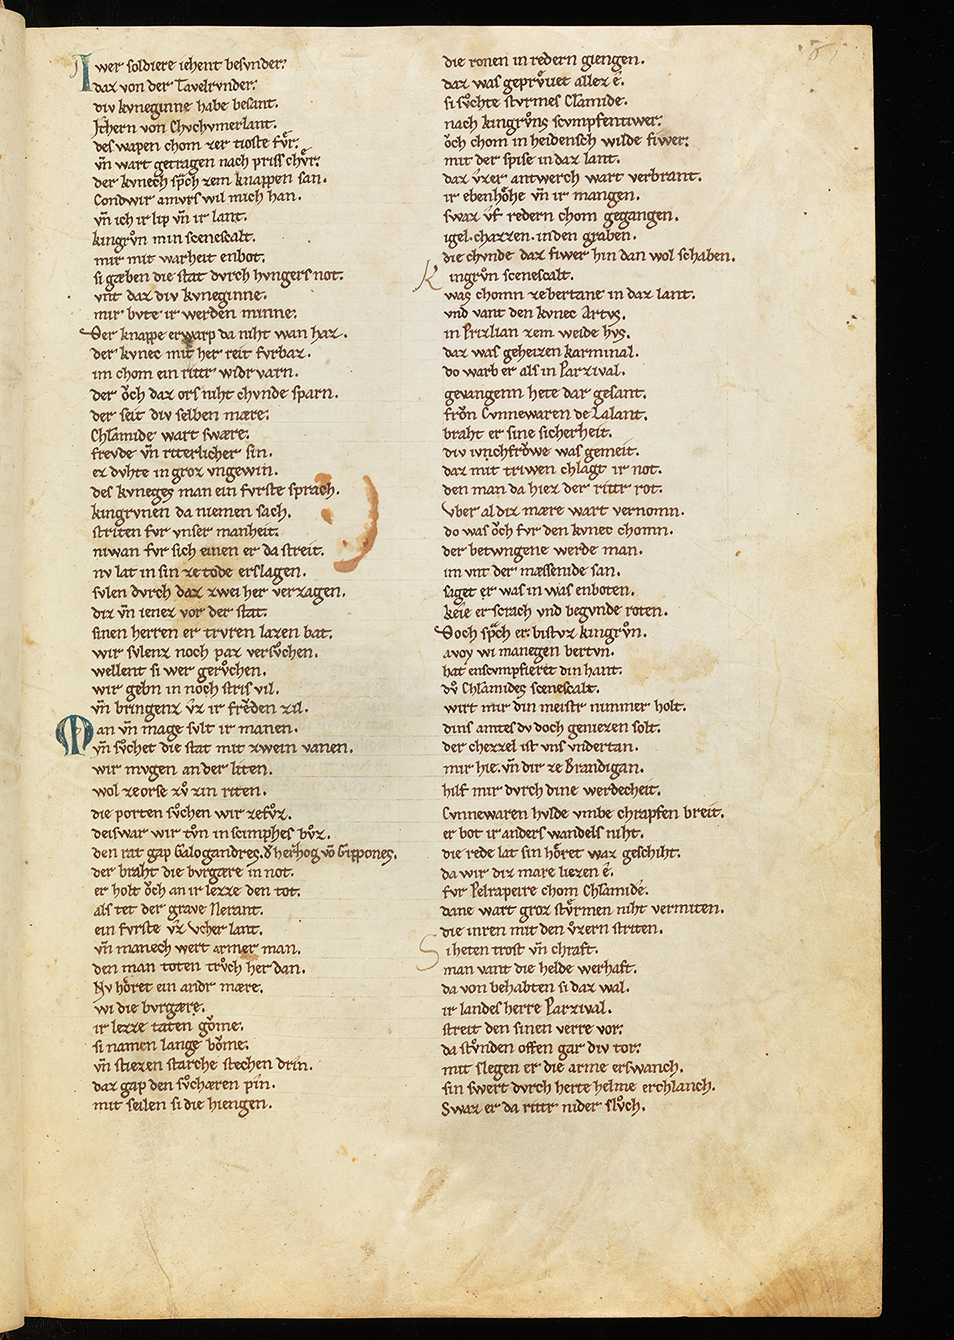 Iwer soldiere iehent besvnder.
daz von der Tavelrvnder.
div kvneginne habe besant.
Jthern von Chvchvmerlant.
des wapen chom zer tioste fv̊r.
vn̄ wart getragen nach priss chv̊r.
der kvnech sp̄ch zem knappen san.
Condwir amvrs wil mich han.
vn̄ ich ir lip vn̄ ir lant.
kingrv̊n min scenescalt.
mir mit warheit enbot.
si gæben die stat dvrch hvngers not.
vnt daz div kvneginne.
mir bvte ir werden minne.
Der knappe erwarp da niht wan haz.
der kvnec mit her reit fvrbaz.
im chom ein rittr widr varn.
der ǒch daz ors niht chvnde sparn.
der seit div selben mære.
Chlamide wart swære.
frevde vn̄ riterlicher sin.
ez dvhte in groz vngewin.
des kvneges man ein fvrste sprach.
kingrvnen da niemen sach.
striten fvr vnser manheit.
niwan fvr sich einen er da streit.
nv lat in sin ze tode erslagen.
svlen dvrch daz zwei her verzagen.
diz vn̄ ienez vor der stat.
sinen herren er trvren lazen bat.
wir svlenz noch paz versv̊chen.
wellent si wer gerv̊chen.
wir gebn in noch stris vil.
vn̄ bringenz v̊z ir frěden zil.
Man vn̄ mage svlt ir manen.
vn̄ sv̊chet die stat mit zwein vanen.
wir mvgen an der liten.
wol ze orse zv̊ zin riten.
die porten sv̊chen wir ze fv̊z.
deiswar wir tv̊n in scimphes bv̊z.
den rat gap Galogandres. d̕ herhog võ Gippones.
der braht die bvrgære in not.
er holt ǒch an ir lezze den tot.
als tet der grave Nerant.
ein fvrste v̊z Vcher lant.
vn̄ manech wert armer man.
den man toten trv̊ch her dan.
Nv hǒret ein andr mære.
wi die bvrgære.
ir lezze taten gǒme.
si namen lange bǒme.
vn̄ stiezen starche stechen drin.
daz gap den sv̊chæren pin.
mit seilen si die hiengen.
die ronen in redern giengen.
daz was geprv̊uet allez ê.
si sv̊chte stvrmes Clamide.
nach kingrv̊ns scvmpfentiwer.
ǒch chom in heidensch wilde fiwer.
mit der spise in daz lant.
daz v̊zer antwerch wart verbrant.
ir ebenhǒhe vn̄ ir mangen.
swaz v̊f redern chom gegangen.
igel. chazzen. in den graben.
die chvnde daz fiwer hin dan wol schaben.
Kingrv̊n scenescalt.
was chomn ze bertane in daz lant.
vnd vant den kvnec Artvs.
in Prizlian zem weide hvs.
daz was geheizen karminal.
do warb er als in Parzival.
gevangenn hete dar gesant.
frǒn Cvnnewaren de Lalant.
braht er sine sicherheit.
div ivnchfrǒwe was gemeit.
daz mit triwen chlagt ir not.
den man da hiez der rittr rot.
Vber al diz mære wart vernomn.
do was ǒch fvr den kvnec chomn.
der betwngene werde man.
im vnt der mæssenide san.
saget er was in was enboten.
keie erscrach vnd begvnde roten.
Doch sp̄ch er. bistvz kingrv̊n.
avoy wi manegen bertvn.
hat enscvmpfieret din hant.
dv̊ Chlamides scenescalt.
wirt mir din meistr nimmer holt.
dins amtes dv doch geniezen solt.
der chezzel ist vns vndertan.
mir hie. vn̄ dir ze Brandigan.
hilf mir dvrch dine werdecheit.
Cvnnewaren hvlde vmbe chrapfen breit.
er bot ir anders wandels niht.
die rede lat sin hǒret waz geschiht.
da wir diz mare liezen ê.
fvr Pelrapeire chom Chlamide.
dane wart groz stv̊rmen niht vermiten.
die inren mit den v̊zern striten.
Si heten trost vn̄ chraft.
man vant die helde werhaft.
da von behabten si daz wal.
ir landes herre Parzival.
streit den sinen verre vor.
da stv̊nden offen gar div tor.
mit slegen er die arme erswanch.
sin swert dvrch herte helme erchlanch.
Swaz er da rittr nider slv̊ch.